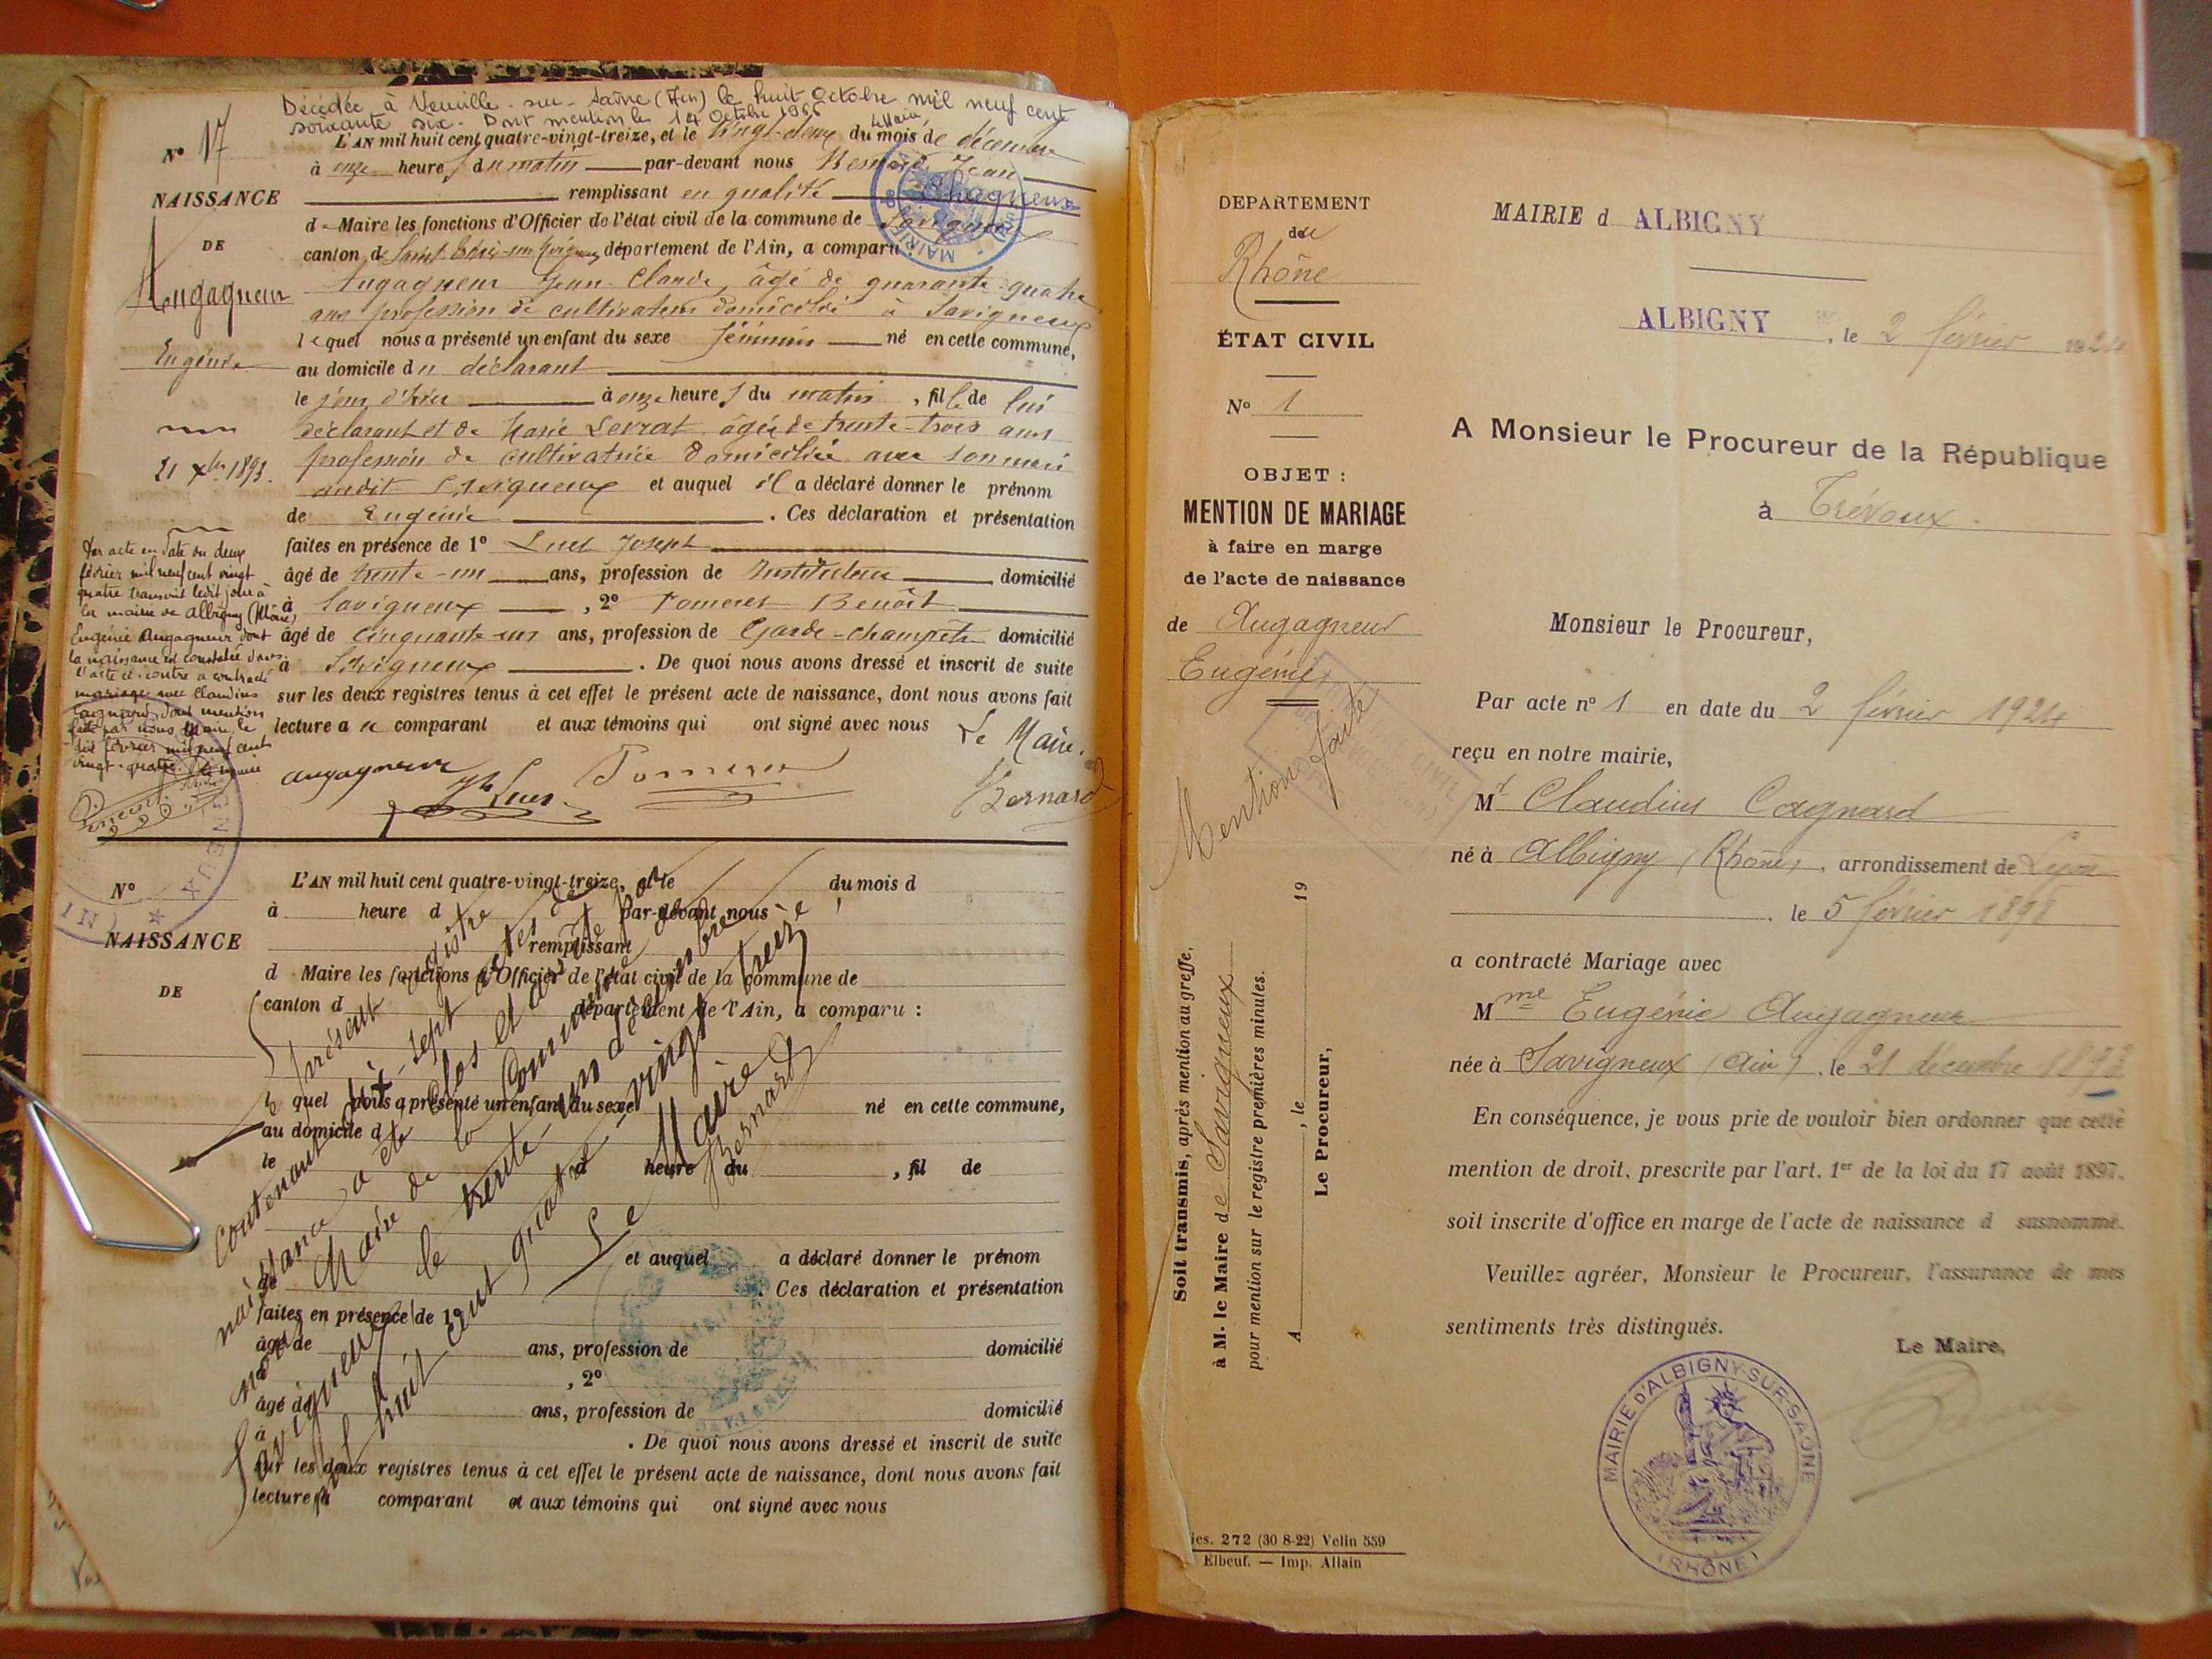 Décédée à Neuville-sur-Saône (Ain) le huit Octobre mil neuf cent
soixante six. Dont mention le 14 Octobre 1966
N° 17
NAISSANCE
DE
Augagneur
Eugénie
21 Xbre 1893.
L'AN mil huit cent quatre-vingt-treize, et le vingt-deux du mois de décembre
à onze heures du matin par-devant nous Bernard Jean
remplissant en qualité
d Maire les fonctions d'Officier de l'état civil de la commune de Savigneux
canton d département de l'Ain, a comparu :
Augagneur Jean-Claude, âgé de quarante-quatre
ans profession de cultivateur domicilié à Savigneux
lequel nous a présenté un enfant du sexe féminin né en cette commune,
au domicile du déclarant
le jour d'hier à onze heures du matin, fille de lui
déclarant et de Marie Levrat âgée de trente-trois ans
profession de cultivatrice domiciliée avec son mari
audit Savigneux et auquel il a déclaré donner le prénom
de Eugénie . Ces déclaration et présentation
faites en présence de 1° Luer Joseph
âgé de trente-un ans, profession de Instituteur domicilié
à Savigneux , 2° Pomeret Benoît
âgé de cinquante-un ans, profession de Garde-champêtre domicilié
à Savigneux . De quoi nous avons dressé et inscrit de suite
sur les deux registres tenus à cet effet le présent acte de naissance, dont nous avons fait
lecture au comparant et aux témoins qui ont signé avec nous
Le Maire.
augagneur
Bernard
Par acte en date du deux
février mil neuf cent vingt
quatre transcrit ledit jour à
la mairie de Albigny (Rhône)
Eugénie Augagneur dont
la naissance est constatée dans
l'acte ci-contre a contracté
mariage avec Claudius
Cagnard, dont mention
faite par nous, Maire, le
dix février mil neuf cent
vingt-quatre. Le Maire
N°
NAISSANCE
DE
L'AN mil huit cent quatre-vingt-treize, et le du mois d
à heure d par-devant nous
remplissant
d Maire les fonctions d'Officier de l'état civil de la commune de
canton d département de l'Ain, a comparu :
le quel nous a présenté un enfant du sexe né en cette commune,
au domicile d
le à heure du , fil de
et auquel a déclaré donner le prénom
de . Ces déclaration et présentation
faites en présence de 1°
âgé de ans, profession de domicilié
à , 2°
âgé de ans, profession de domicilié
à . De quoi nous avons dressé et inscrit de suite
sur les deux registres tenus à cet effet le présent acte de naissance, dont nous avons fait
lecture a comparant et aux témoins qui ont signé avec nous
présent registre
contenant dix-sept actes de
naissance, a été clos et
Maire de la Commune de
Savigneux le trente-un décembre
mil huit cent quatre-vingt treize
Le Maire
Bernard
DEPARTEMENT
de du
Rhône
ÉTAT CIVIL
N° 1
OBJET :
MENTION DE MARIAGE
à faire en marge
de l'acte de naissance
de Augagneur
Eugénie
Mention faite
Soit transmis, après mention au greffe,
à M. le Maire de Savigneux
pour mention sur le registre premières minutes.
A , le 19
Le Procureur,
ies. 272 (30 8-22) Velin 559
Elbeuf. — Imp. Allain
MAIRIE d ALBIGNY
ALBIGNY , le 2 février 1924
A Monsieur le Procureur de la République
à Trévoux.
Monsieur le Procureur,
Par acte n° 1 en date du 2 février 1924
reçu en notre mairie,
Mr Claudius Cagnard
né à Albigny (Rhône), arrondissement de Lyon
. le 5 février 1898
a contracté Mariage avec
Mme Eugénie Augagneur
née à Savigneux (Ain) , le 21 décembre 1893
En conséquence, je vous prie de vouloir bien ordonner que cette
mention de droit, prescrite par l'art. 1er de la loi du 17 août 1897,
soit inscrite d'office en marge de l'acte de naissance d susnommé.
Veuillez agréer, Monsieur le Procureur, l'assurance de mes
sentiments très distingués.
Le Maire,
MAIRIE D'ALBIGNY-SUR-SAONE
(RHÔNE)